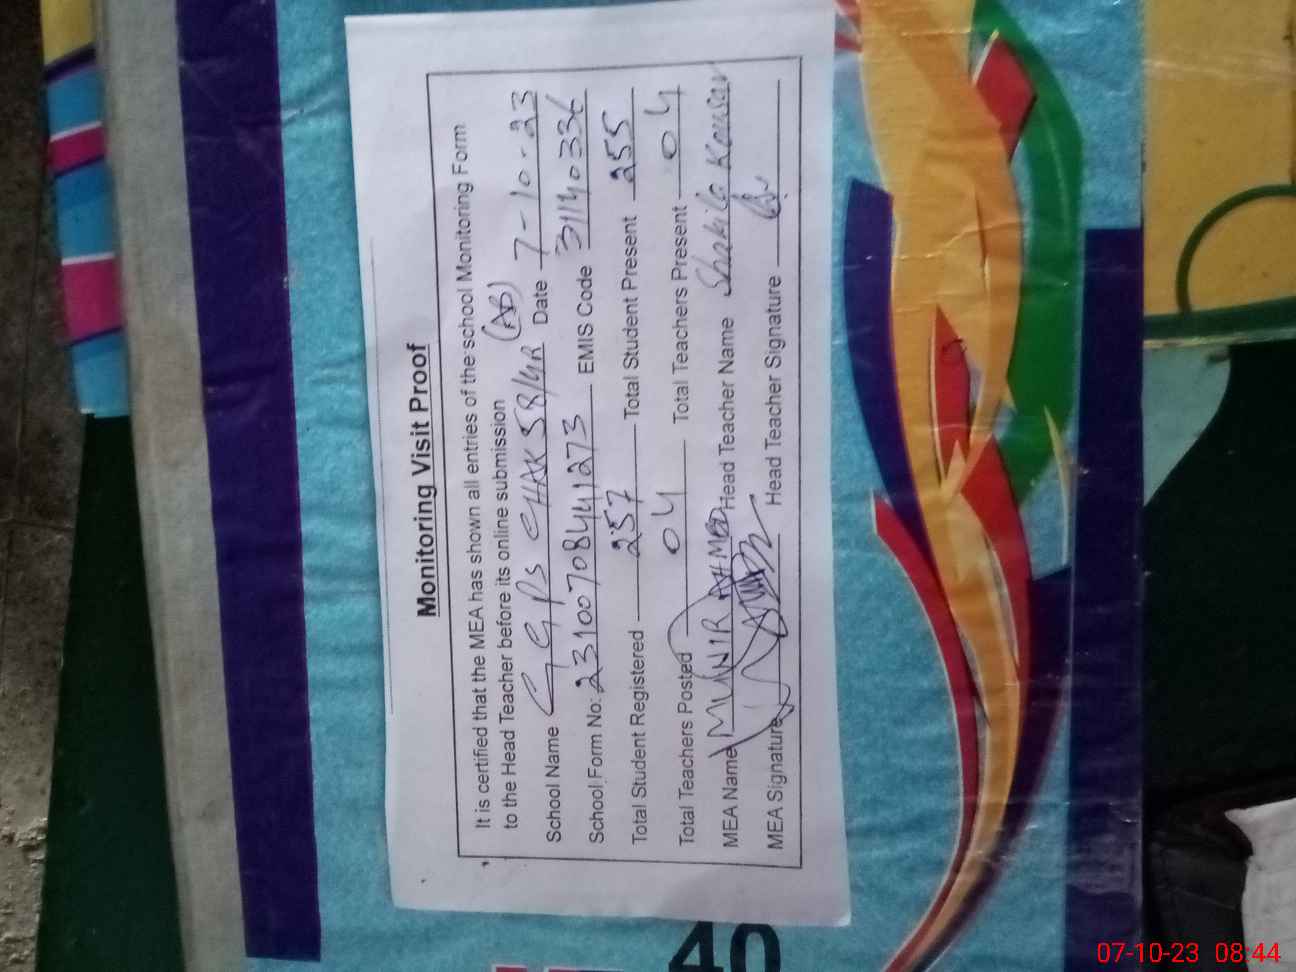 Monitoring Visit Proof
It is certified that the MEA has shown all entries of the school Monitoring Form
to the Head Teacher before its online submission
School Name GGPS CHAK 58/4R (AB) Date 7-10-23
School Form No: 23100708441273 EMIS Code 31140336
Total Student Registered 257 Total Student Present 255
Total Teachers Posted 04 Total Teachers Present 04
MEA Name MUNIR AHMED Head Teacher Name Shakila Kousar
MEA Signature Head Teacher Signature
40
07-10-23 08:44